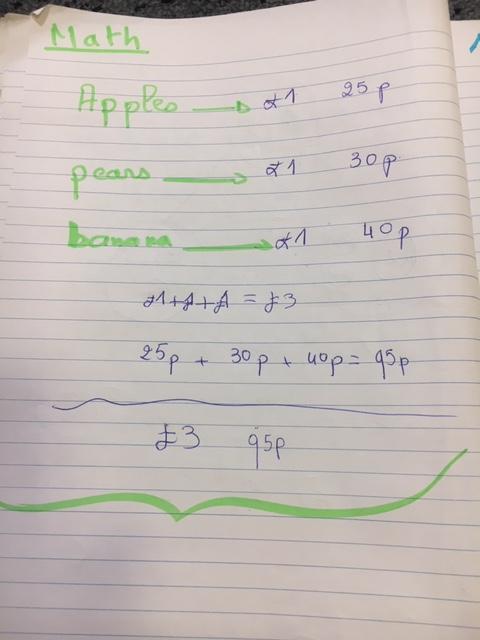 Math
Apples → £1 25p
pears → £1 30p
banana → £1 40p
£1+£1+£1 = £3
25p + 30p + 40p = 95p
£3 95p